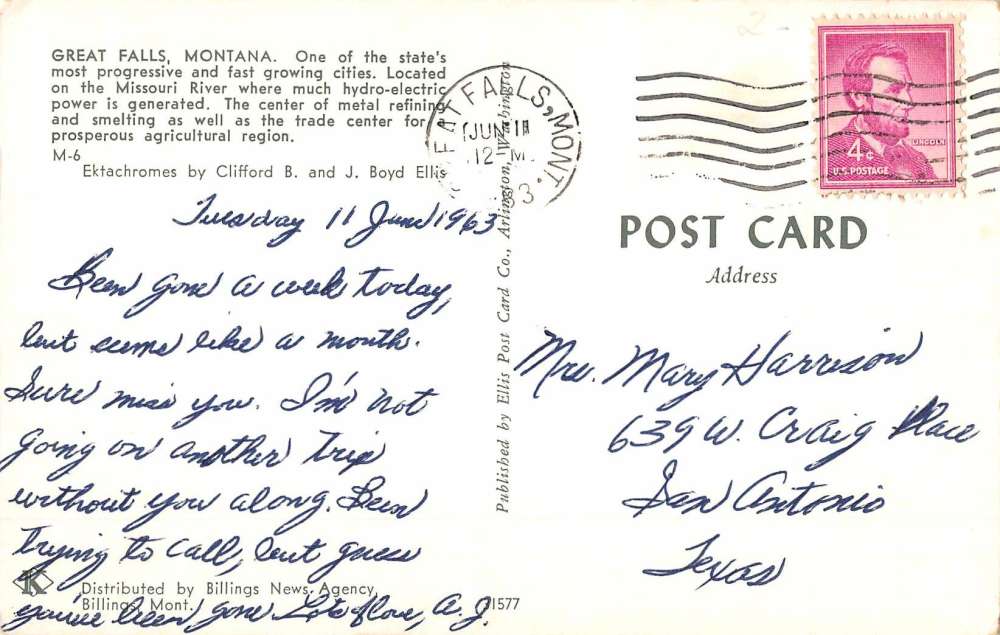 GREAT FALLS, MONTANA. One of the state's
most progressive and fast growing cities. Located
on the Missouri River where much hydro-electric
power is generated. The center of metal refining
and smelting as well as the trade center for a
prosperous agricultural region.
M-6
Ektachromes by Clifford B. and J. Boyd Ellis
Tuesday 11 June 1963
Been gone a week today,
but seems like a month.
Sure miss you. I'm not
going on another trip
without you along. Been
trying to call, but guess
you've been gone Lots of love, A.J.
K
Distributed by Billings News Agency,
Billings, Mont.
31577
Published by Ellis Post Card Co., Arlington, Washington
EAT FALLS, MONT.
JUN 11
12-M
63
LINCOLN
4¢
U.S. POSTAGE
POST CARD
Address
Mrs. Mary Harrison
639 W. Craig Place
San Antonio
Texas
2